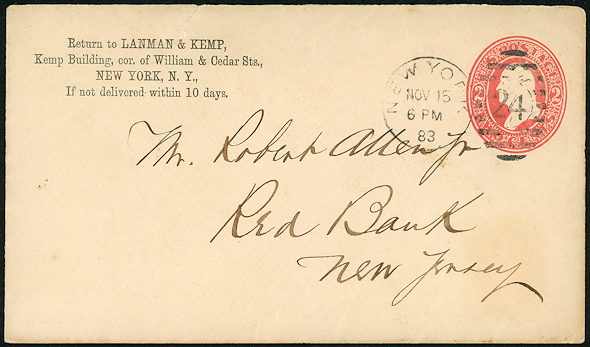 Return to LANMAN & KEMP,
Kemp Building, cor. of William & Cedar Sts.,
NEW YORK, N. Y.,
If not delivered within 10 days.
NEW YORK
NOV 15
6 PM
83
U.S. POSTAGE
2 2
24
Mr. Robert Allen Jr
Red Bank
New Jersey